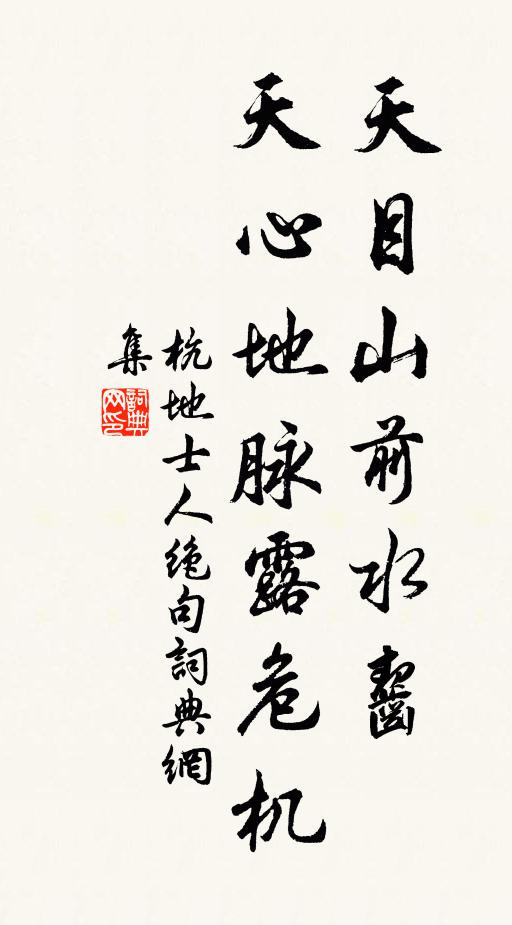 天目山前水齧
天心地脉露危机
杭地士人绝句詞典網
集
詞典网印